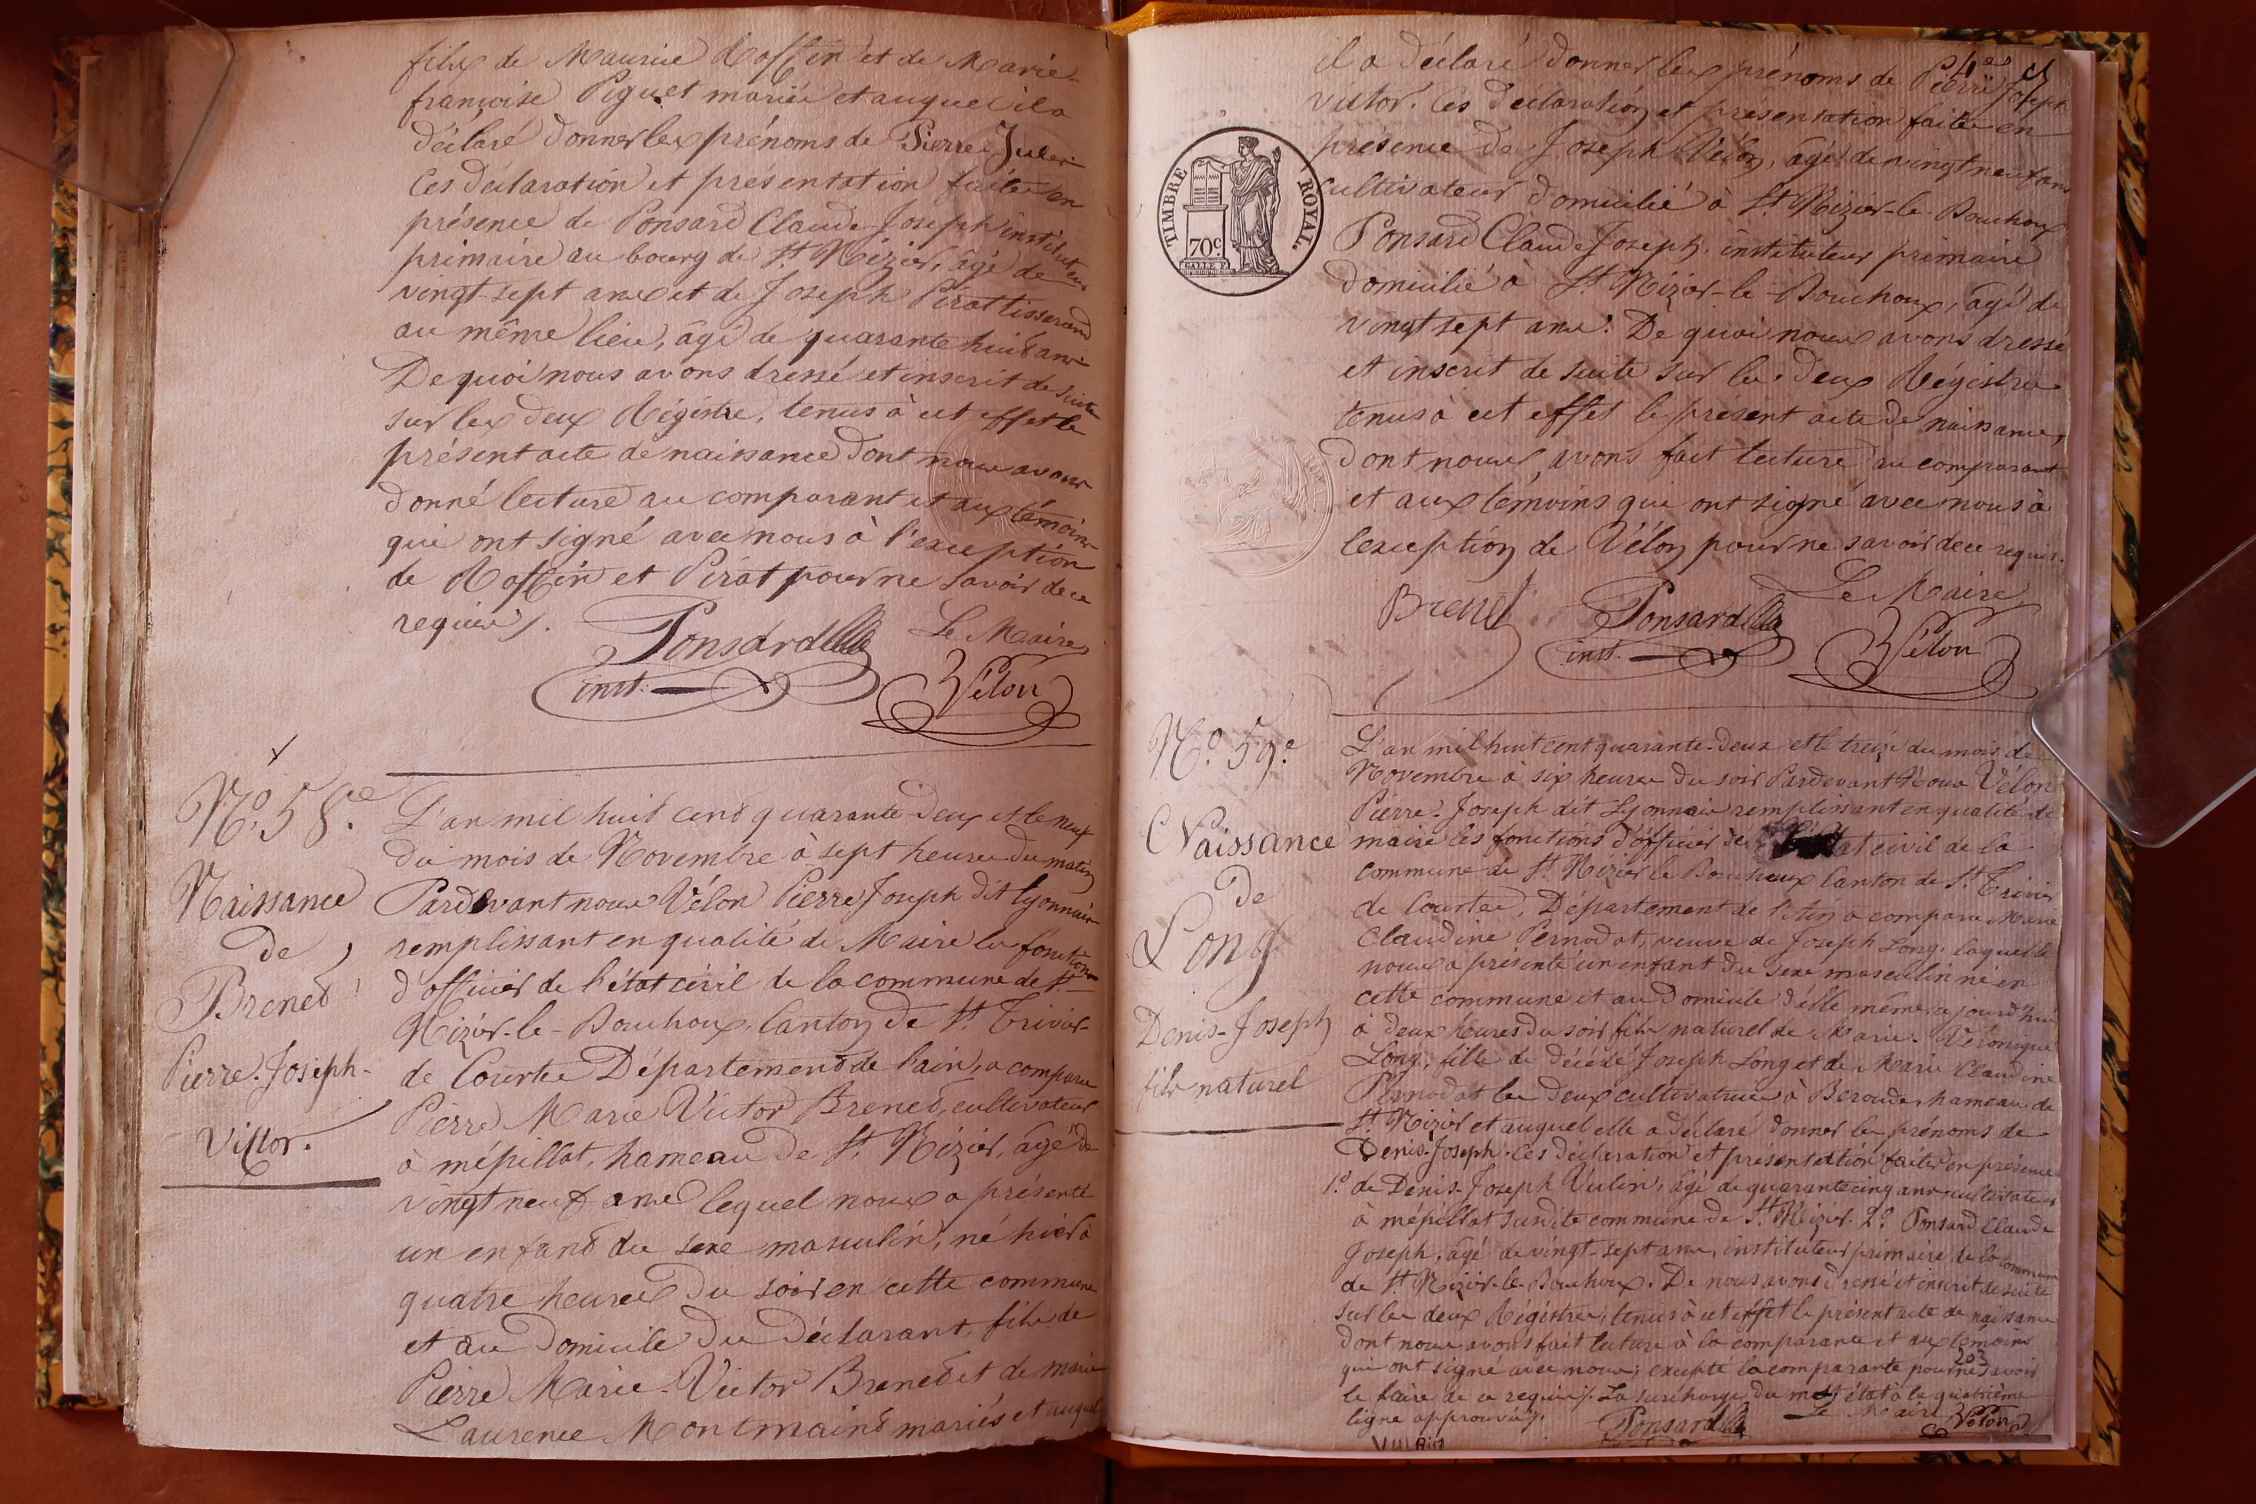 fils de Maurice Roffin et de Marie-
françoise Piguet mariés et auquel il a
déclaré donner les prénoms de Pierre Julien
Ces déclaration et présentation faites en
présence de Ponsard Claude Joseph instituteur
primaire au bourg de St Nizier, âgé de
vingt-sept ans et de Joseph Pirat tisserand
au même lieu, âgé de quarante huit ans
De quoi nous avons dressé et inscrit de suite
sur les deux Régistre, tenus à cet effet le
présent acte de naissance dont nous avons
donné lecture au comparant et aux témoins
qui ont signé avec nous à l'exception
de Roffin et Pirat pour ne savoir de ce
requis.
Le Maire
Ponsard
inst.
Vélon
No. 58.e
Naissance
de
Brenet
Pierre-Joseph-
Victor.
L'an mil huit cent quarante-deux et le neuf
du mois de Novembre à sept heures du matin
Pardevant nous Vélon Pierre Joseph dit lyonnais
remplissant en qualité de Maire les fonctions
d'officier de l'état civil de la commune de St
Nizier-le-Bouchoux, Canton de St Trivier-
de Courtes Département de l'ain, a comparu
Pierre Marie Victor Brenet, cultivateur
à mépillat, hameau de St Nizier, âgé de
vingt neuf ans lequel nous a présenté
un enfant du sexe masculin, né hier à
quatre heures du soir en cette commune
et au Domicile du Déclarant, fils de
Pierre Marie-Victor Brenet et de marie
Laurence Montmaint mariés et auquel
il a déclaré donner les prénoms de Pierre Joseph
Victor. Ces déclaration et présentation faites en
présence de Joseph Vélon, âgé de vingt neuf ans
cultivateur domicilié à St Nizier-le-Bouchoux
Ponsard Claude Joseph, instituteur primaire
domicilié à St Nizier-le-Bouchoux, âgé de
vingt sept ans. De quoi nous avons dressé
et inscrit de suite sur les deux Régistres
tenus à cet effet le présent acte de naissance,
dont nous avons fait lecture au comparant
et aux témoins qui ont signé avec nous à
l'exception de Vélon pour ne savoir de ce requis.
Le Maire
Brenet
Ponsard
inst.
Vélon
TIMBRE ROYAL.
70c.
No. 59.e
Naissance
de
Long
Denis-Joseph
fils naturel
L'an mil huit cent quarante-deux et le treize du mois de
Novembre à six heures du soir Pardevant Nous Vélon
Pierre-Joseph dit Lyonnais remplissant en qualité de
maire les fonctions d'officier de l'état civil de la
commune de St Nizier le Bouchoux Canton de St Trivier
de Courtes, Département de l'Ain a comparu Marie
Claudine Pernodat, veuve de Joseph Long, laquelle
nous a présenté un enfant du sexe masculin né en
cette commune et au Domicile d'elle même, aujourd'hui
à deux heures du soir fils naturel de Marie-Véronique
Long, fille de décédé Joseph Long et de Marie Claudine
Pernodat les deux cultivatrices à Beroudes, hameau de
St Nizier et auquel elle a déclaré donner les prénoms de
Denis-Joseph. Ces déclaration et présentation faites en présence
1.o de Denis-Joseph Vulin, âgé de quarante cinq ans cultivateur
à mépillat susdite commune de St Nizier. 2.o Ponsard Claude
Joseph, âgé de vingt-sept ans, instituteur primaire de la commune
de St Nizier-le-Bouchoux. De nous avons dressé et inscrit de suite
sur les deux Régistres, tenus à cet effet le présent acte de naissance
dont nous avons fait lecture à la comparante et aux témoins
qui ont signé avec nous; excepté la comparante pour ne savoir
le faire de ce requis. La surcharge du mot état à la quatrième
ligne approuvée.
Le Maire
Ponsard
Vélon